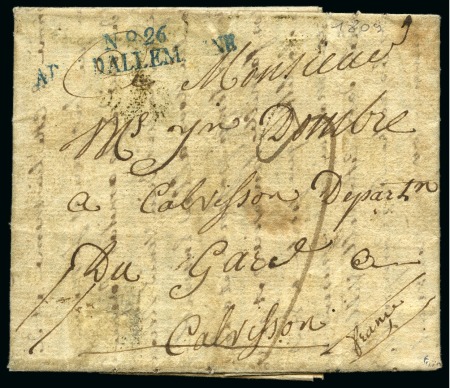 1809
No. 26
ARM. D'ALLEMAGNE
Monsieur
Mr yn Dombre
a Calvisson Departn
Du Gard a
Calvisson
france